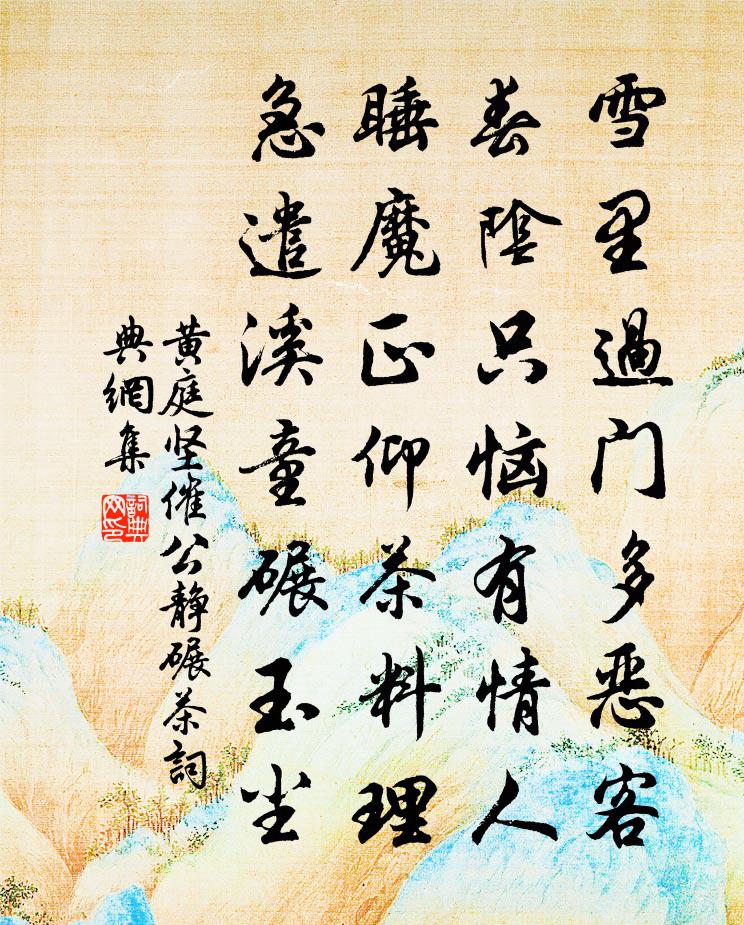 雪里過门多恶客
春陰只恼有情人
睡魔正仰茶料理
急遣溪童碾玉尘
黄庭坚催公静碾茶詞
典網集
詞典
网印